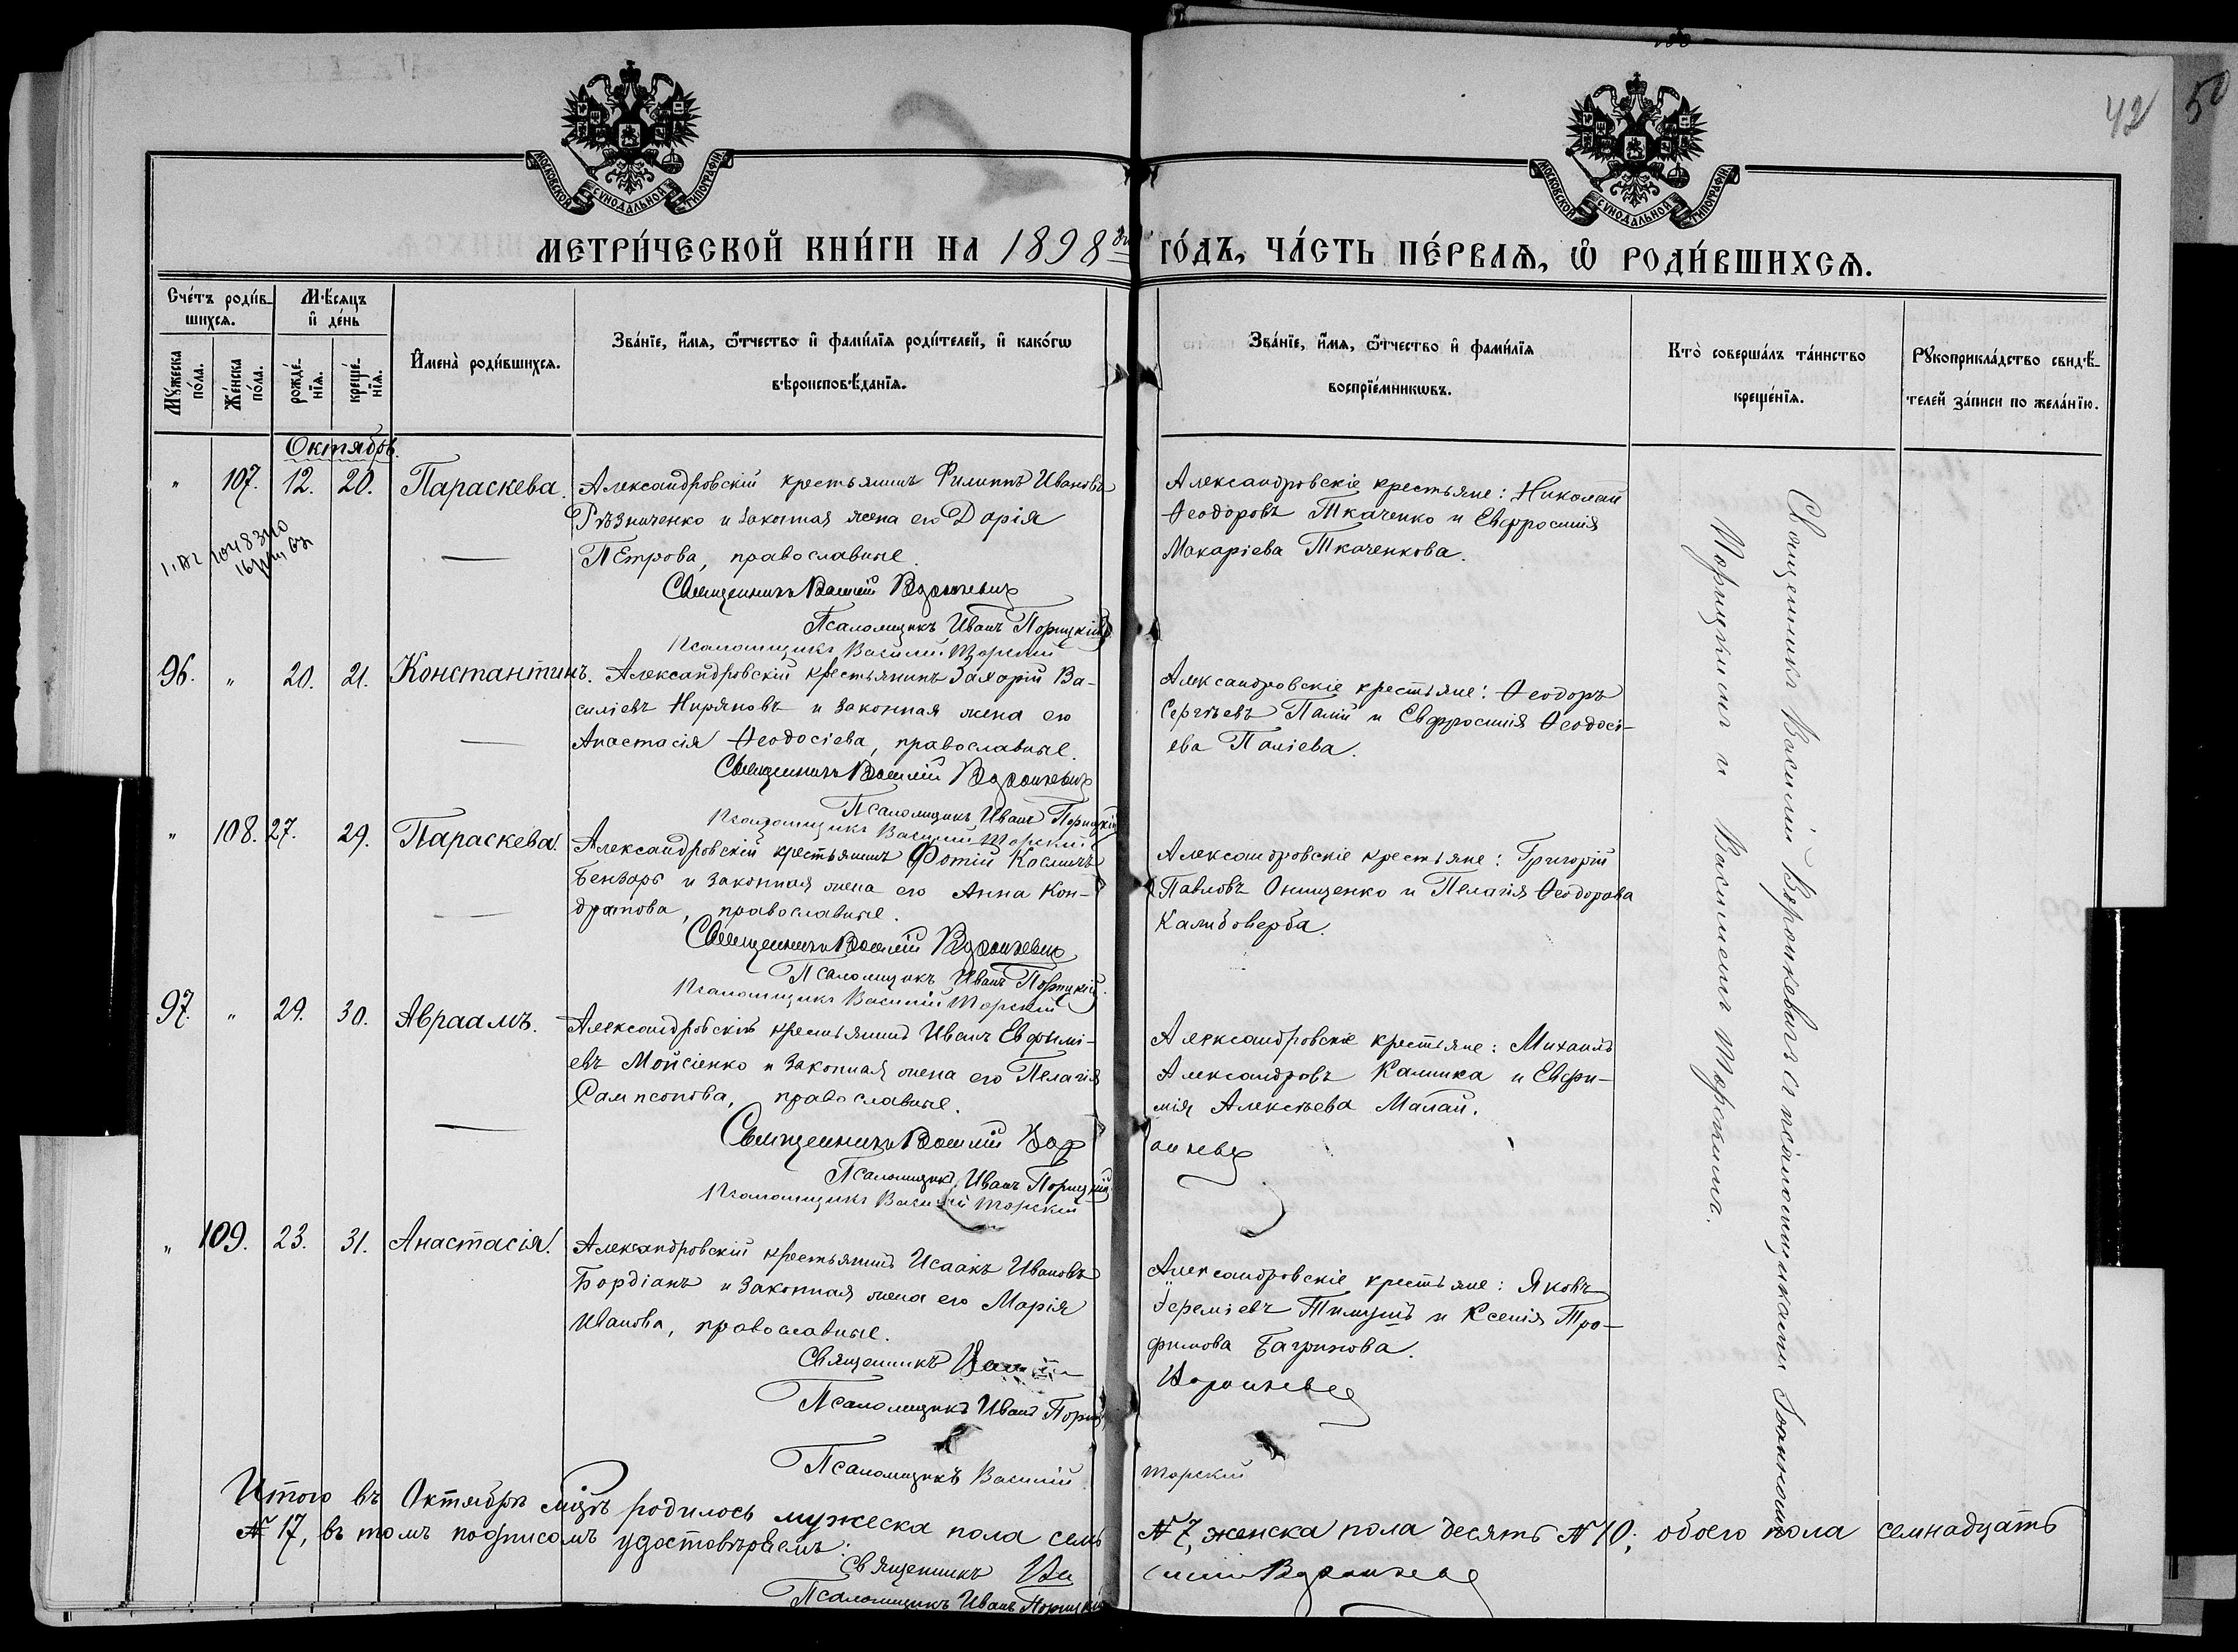 42
50
МОСКОВСКОЙ СѴНОДАЛЬНОЙ ТИПОГРАФІИ
МОСКОВСКОЙ СѴНОДАЛЬНОЙ ТИПОГРАФІИ
МЕТРИ́ЧЕСКОЙ КНИ́ГИ НА 1898 ГО́ДЪ, ЧА́СТЬ ПЕ́РВАѦ, Ѡ҆ РОДИ́ВШИХСѦ.
Сче́тъ роди́в-
шихсѧ.
Мꙋ́жеска по́ла.
Же́нска по́ла.
Мѣ́сѧцъ и҆ де́нь
рожде́-
нїѧ.
креще́-
нїѧ.
И҆мена̀ роди́вшихсѧ.
Зва́нїе, и҆́мѧ, ѻ҆́тчество и҆ фами́лїѧ роди́телей, и҆ како́гѡ
вѣроисповѣ́данїѧ.
Зва́нїе, и҆́мѧ, ѻ҆́тчество и҆ фами́лїѧ
воспрїе́мникѡвъ.
Кто̀ соверша́лъ та́инство
креще́нїѧ.
Рꙋкоприкла́дство свидѣ́-
телей за́писи по жела́нїю.
Октябрь.
" 107. 12. 20. Параскева.
Александровскій крестьянинъ Филиппъ Ивановъ
Рѣзниченко и законная жена его Дарія
Петрова, православные.
Священникъ Василій Воронкевичъ
Псаломщикъ Иванъ Порицкій
Псаломщикъ Василій Торскій
Александровскіе крестьяне: Николай
Ѳеодоровъ Ткаченко и Евфросинія
Макаріева Ткаченкова.
96. " 20. 21. Константинъ.
Александровскій крестьянинъ Захарій Ва-
силіевъ Нирановъ и законная жена его
Анастасія Ѳеодосіева, православные.
Священникъ Василій Воронкевичъ
Псаломщикъ Иванъ Порицкій
Псаломщикъ Василій Торскій
Александровскіе крестьяне: Ѳеодоръ
Сергѣевъ Палій и Евфросинія Ѳеодосі-
ева Паліева.
" 108. 27. 29. Параскева.
Александровскій крестьянинъ Фотій Косминъ
Бензарь и законная жена его Анна Кон-
дратова, православные.
Священникъ Василій Воронкевичъ
Псаломщикъ Иванъ Порицкій
Псаломщикъ Василій Торскій
Александровскіе крестьяне: Григорій
Павловъ Онищенко и Пелагія Ѳеодорова
Калибоверба.
97. " 29. 30. Авраамъ.
Александровскій крестьянинъ Иванъ Евфимі-
евъ Мойсіенко и законная жена его Пелагія
Сампсонова, православные.
Священникъ Василій Воронкевичъ
Псаломщикъ Иванъ Порицкій
Псаломщикъ Василій Торскій
Александровскіе крестьяне: Михаилъ
Александровъ Калинка и Евфи-
мія Алексѣева Малай.
" 109. 23. 31. Анастасія.
Александровскій крестьянинъ Исаакъ Ивановъ
Бордіанъ и законная жена его Марія
Иванова, православные.
Священникъ Василій Воронкевичъ
Псаломщикъ Иванъ Порицкій
Псаломщикъ Василій Торскій
Александровскіе крестьяне: Яковъ
Іереміевъ Тимушъ и Ксенія Тро-
фимова Багринова.
Священникъ Василій Воронкевичъ съ псаломщиками Іоанномъ
Порицкимъ и Василіемъ Торскимъ.
Итого въ Октябрѣ мцѣ родилось мужеска пола семь № 7, женска пола десять № 10; обоего пола семнадцать
№ 17, въ томъ подписомъ удостовѣряемъ:
Священникъ Василій Воронкевичъ
Псаломщикъ Иванъ Порицкій